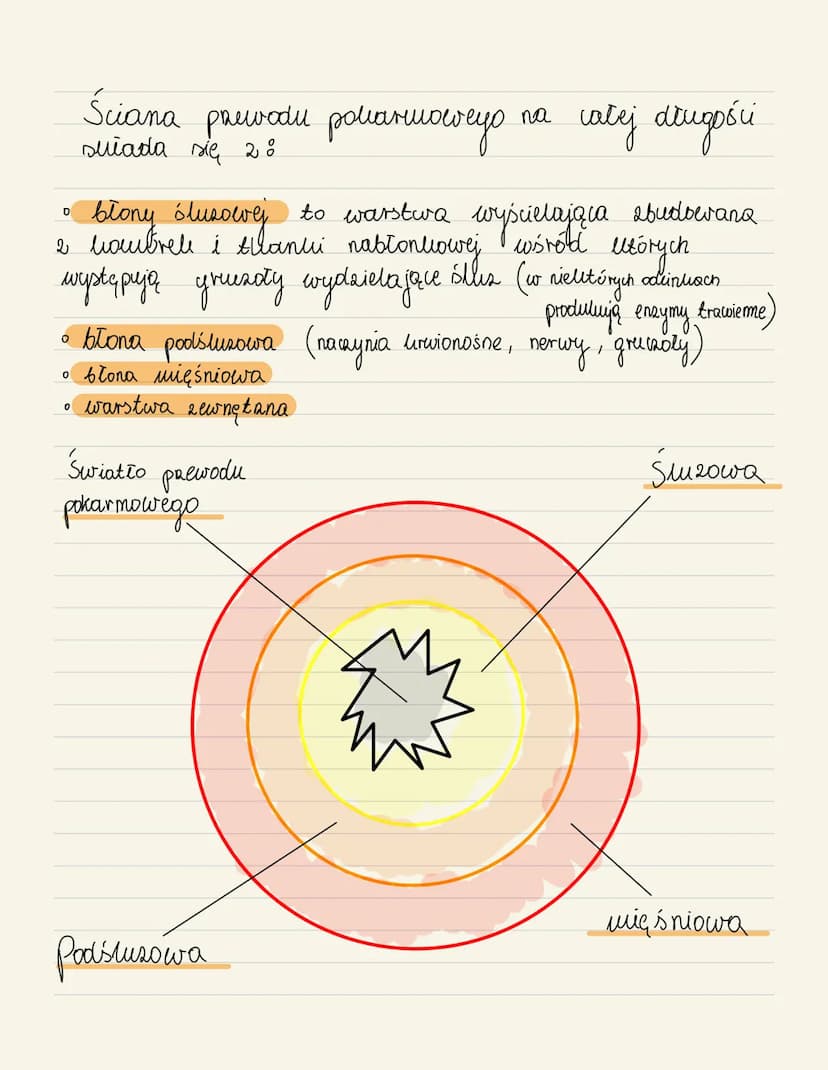 Ściana przewodu pokarmowego na całej długości
składa się z:
◦ błony śluzowej to warstwa wyścielająca zbudowana
z komórek i tkanki nabłonkowej wśród których
występują gruczoły wydzielające śluz (w niektórych odcinkach
produkują enzymy trawienne)
◦ błona podśluzowa (naczynia krwionośne, nerwy, gruczoły)
◦ błona mięśniowa
◦ warstwa zewnętrzna
Światło przewodu
pokarmowego
Śluzowa
mięśniowa
Podśluzowa